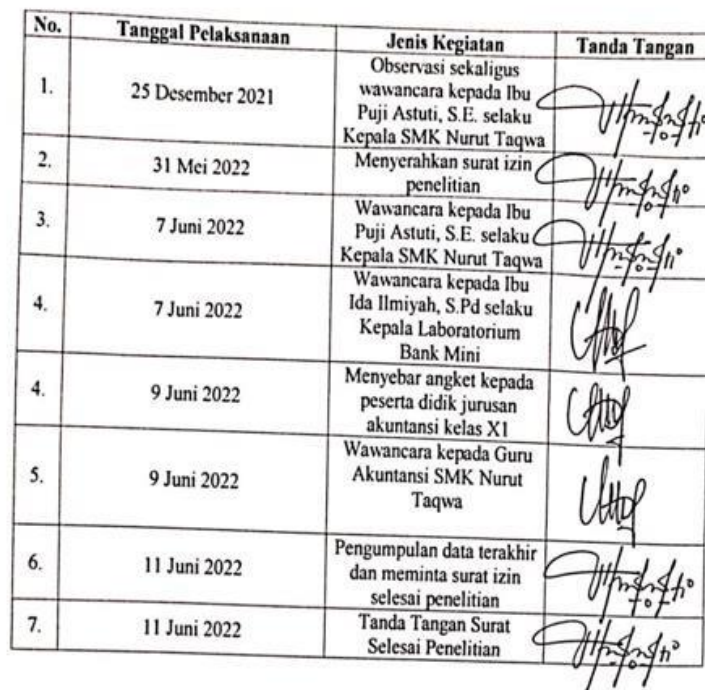 No. Tanggal Pelaksanaan Jenis Kegiatan Tanda Tangan
1. 25 Desember 2021 Observasi sekaligus
wawancara kepada Ibu
Puji Astuti, S.E. selaku
Kepala SMK Nurut Taqwa
2. 31 Mei 2022 Menyerahkan surat izin
penelitian
3. 7 Juni 2022 Wawancara kepada Ibu
Puji Astuti, S.E. selaku
Kepala SMK Nurut Taqwa
4. 7 Juni 2022 Wawancara kepada Ibu
Ida Ilmiyah, S.Pd selaku
Kepala Laboratorium
Bank Mini
4. 9 Juni 2022 Menyebar angket kepada
peserta didik jurusan
akuntansi kelas X1
5. 9 Juni 2022 Wawancara kepada Guru
Akuntansi SMK Nurut
Taqwa
6. 11 Juni 2022 Pengumpulan data terakhir
dan meminta surat izin
selesai penelitian
7. 11 Juni 2022 Tanda Tangan Surat
Selesai Penelitian